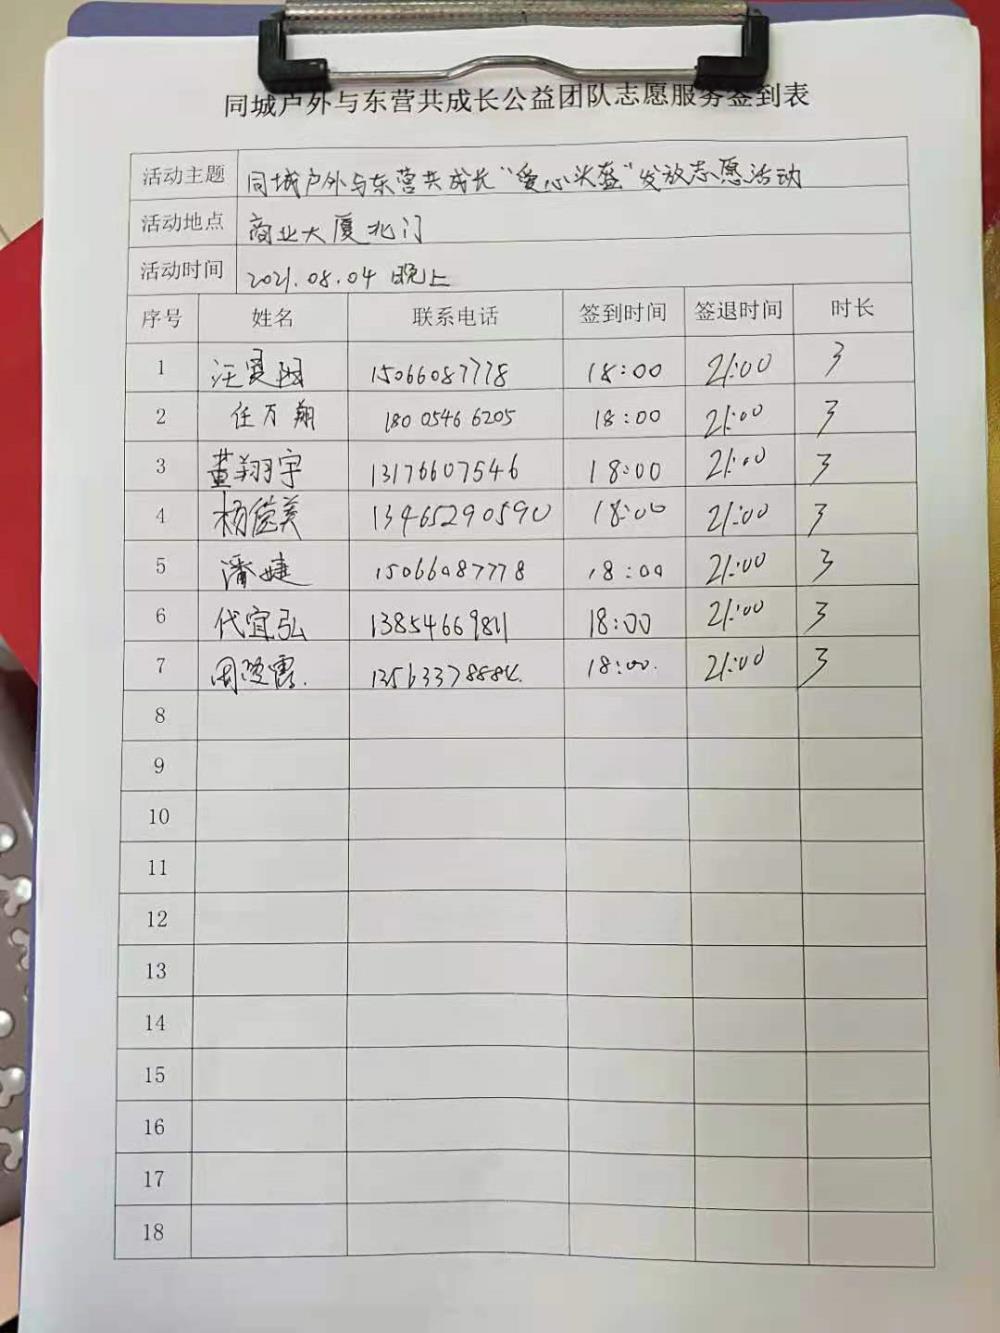 同城户外与东营共成长公益团队志愿服务签到表
活动主题 同城户外与东营共成长“爱心头盔”发放志愿活动
活动地点 商业大厦北门
活动时间 2021.08.04 晚上
序号 姓名 联系电话 签到时间 签退时间 时长
1 15066087778 18:00 21:00 3
2 任万翔 180 0546 6205 18:00 21:00 3
3 董翔宇 13176607546 18:00 21:00 3
4 杨俊美 13465290590 18:00 21:00 3
5 潘婕 15066087778 18:00 21:00 3
6 代宜弘 13854669811 18:00 21:00 3
7 18:00. 21:00 3
8
9
10
11
12
13
14
15
16
17
18